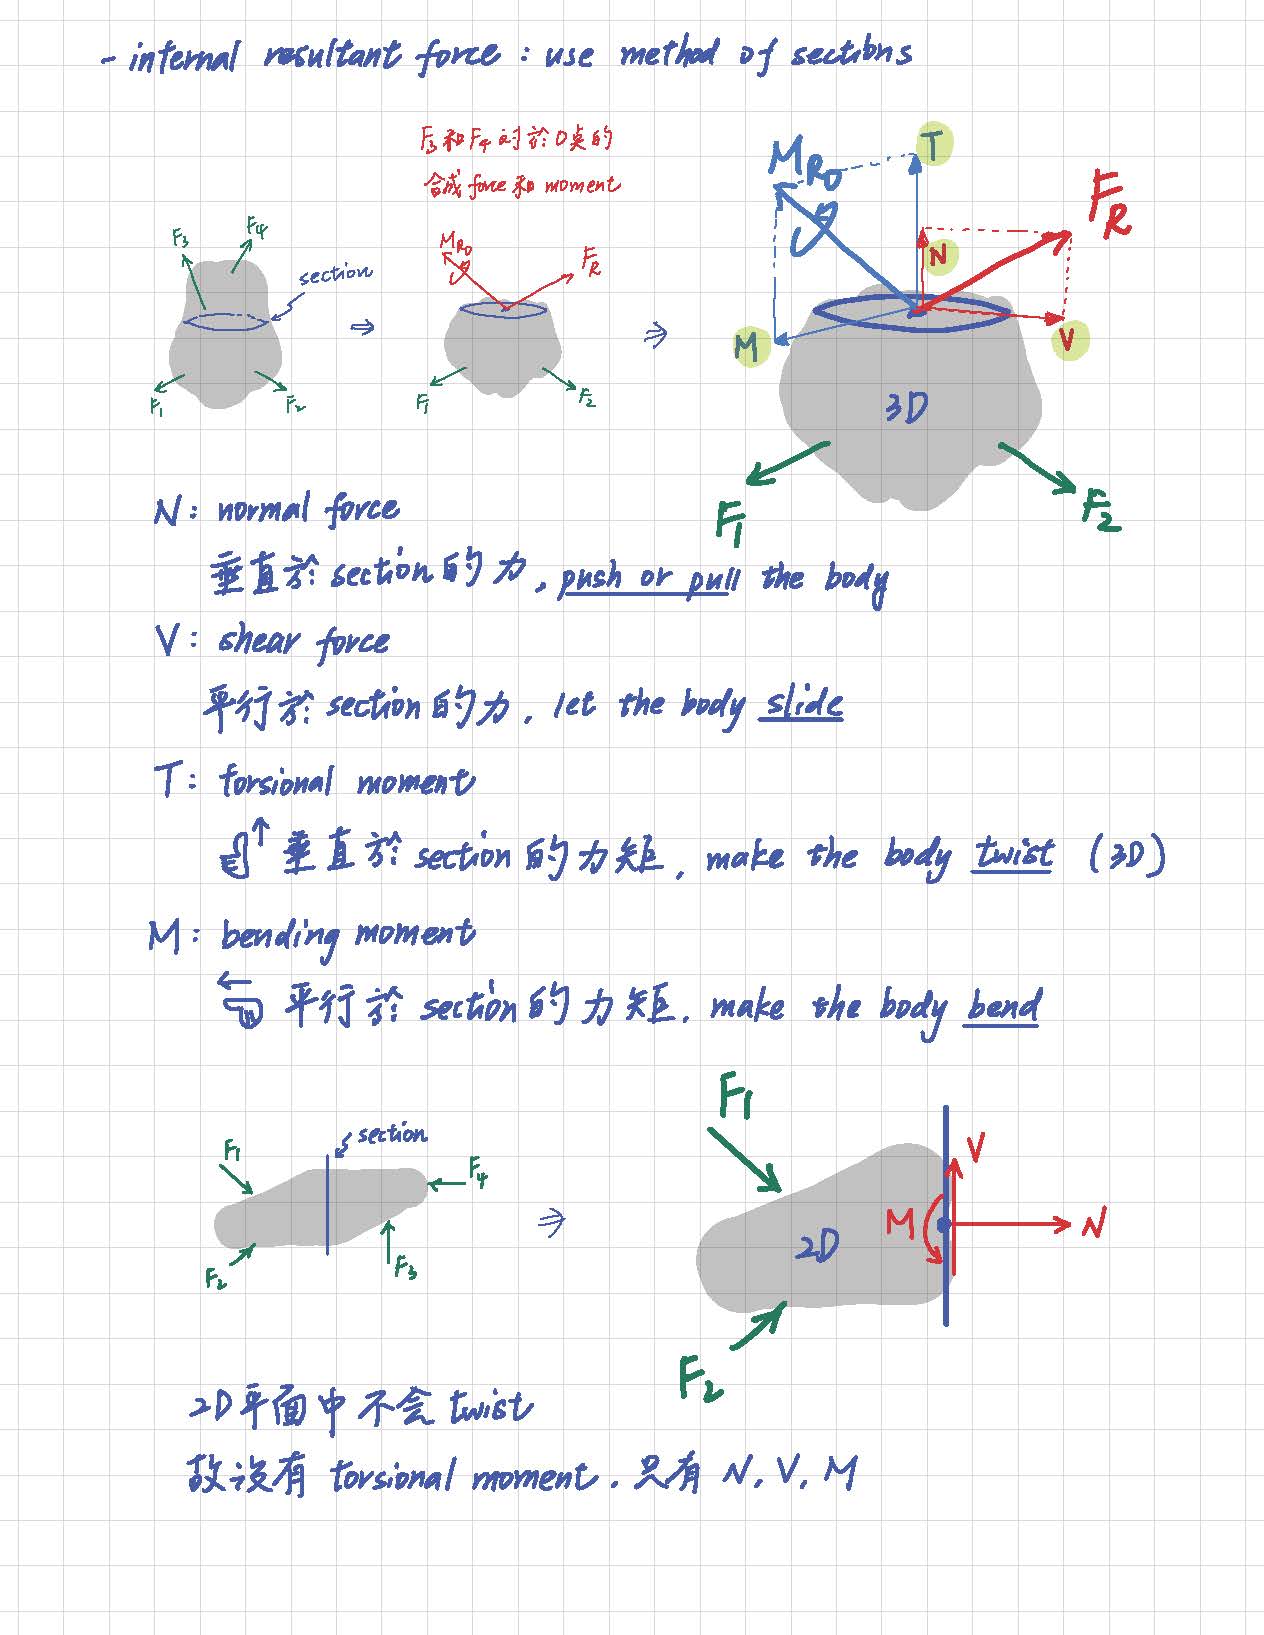 - internal resultant force : use method of sections
F₃和F₄对於O点的
合成force和 moment
F₃
F₄
section
F₁
F₂
⇒
M_Ro
F_R
F₁
F₂
⇒
M_Ro
T
F_R
N
M
V
3D
F₁
F₂
N: normal force
垂直於section的力, push or pull the body
V: shear force
平行於section的力, let the body slide
T: torsional moment
垂直於section的力矩, make the body twist (3D)
M: bending moment
平行於section的力矩, make the body bend
F₁
section
F₄
F₂
F₃
⇒
F₁
V
M
N
2D
F₂
2D平面中不会twist
故没有 torsional moment, 只有 N, V, M